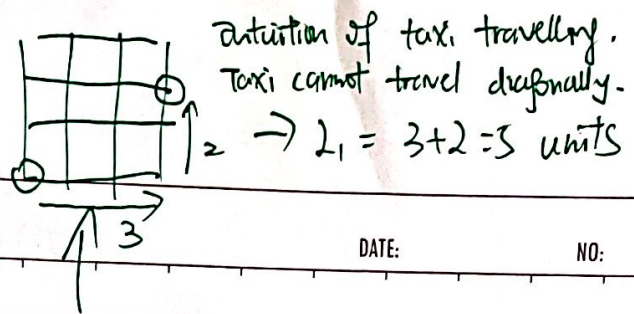 intuition of taxi travelling.
Taxi cannot travel diagonally.
2 → L₁ = 3+2=5 units
3
DATE: NO: